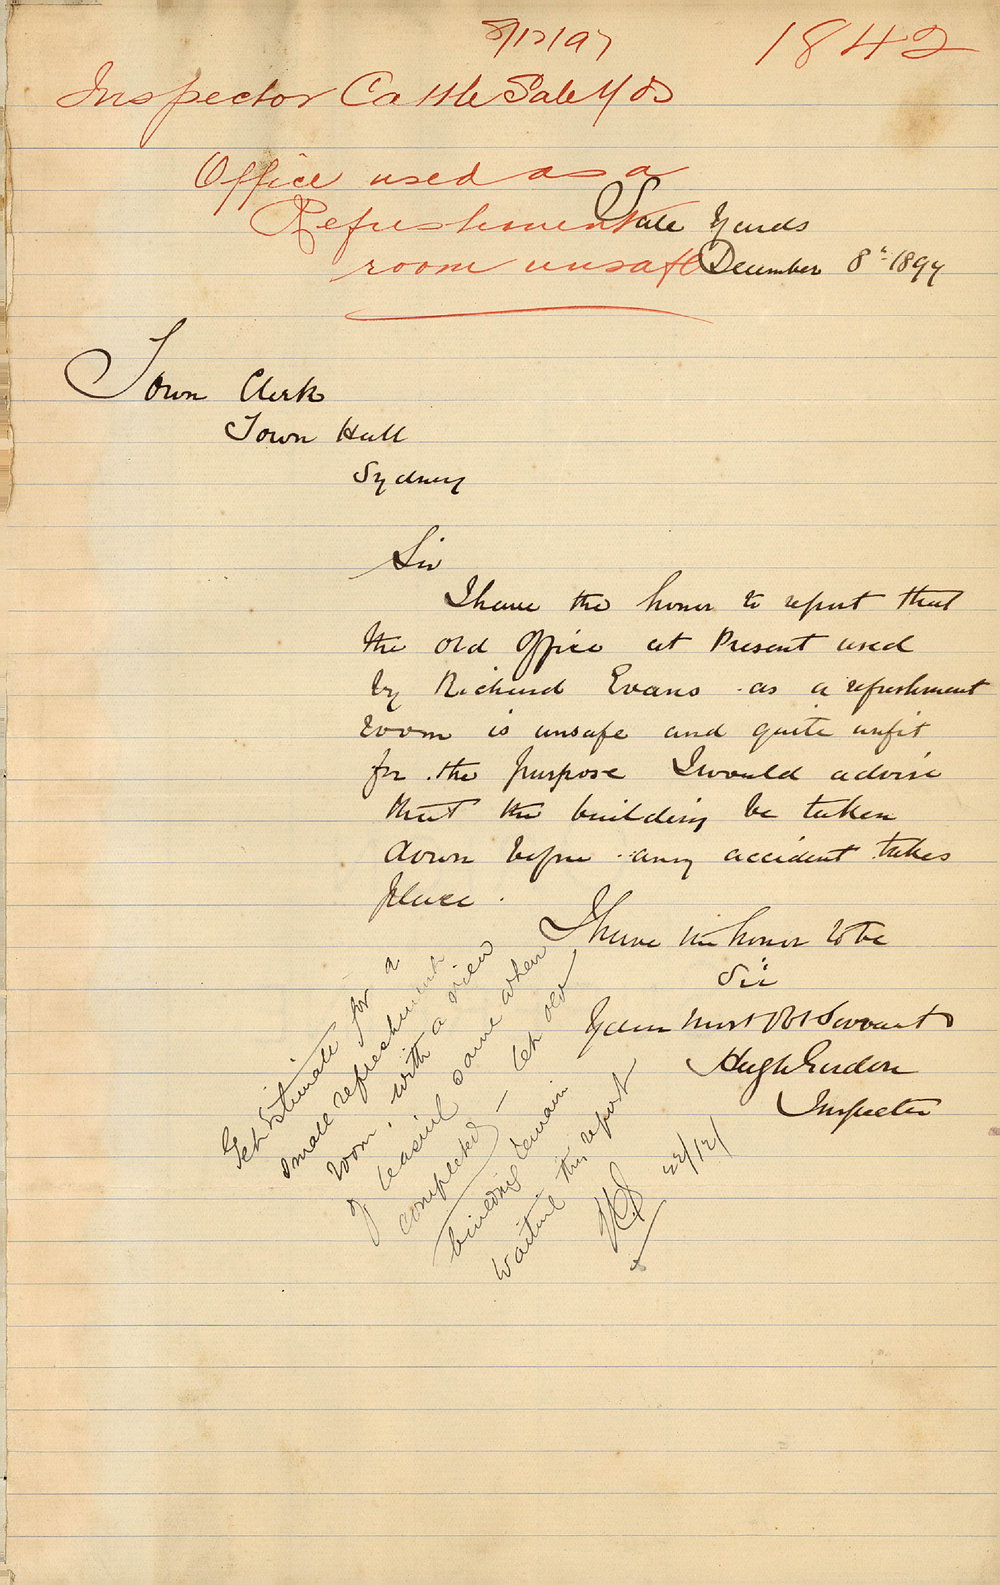 8/12/97
1842
Inspector Cattle Sale Yds
Office used as a
Refreshment
room unsafe
Sale Yards
December 8th 1897
Town Clerk
Town Hall
Sydney
Sir
I have the honor to report that
the old office at Present used
by Richard Evans as a refreshment
room is unsafe and quite unfit
for the purpose I would advise
that the building be taken
down before any accident takes
place.
I have the honor to be
Sir
Your Most Obt Servant
Hugh Gordon
Inspector
Get Estimate for a
small refreshment
room, with a view
of leasing same when
completed - let old
building remain
waiting this report
22/12/